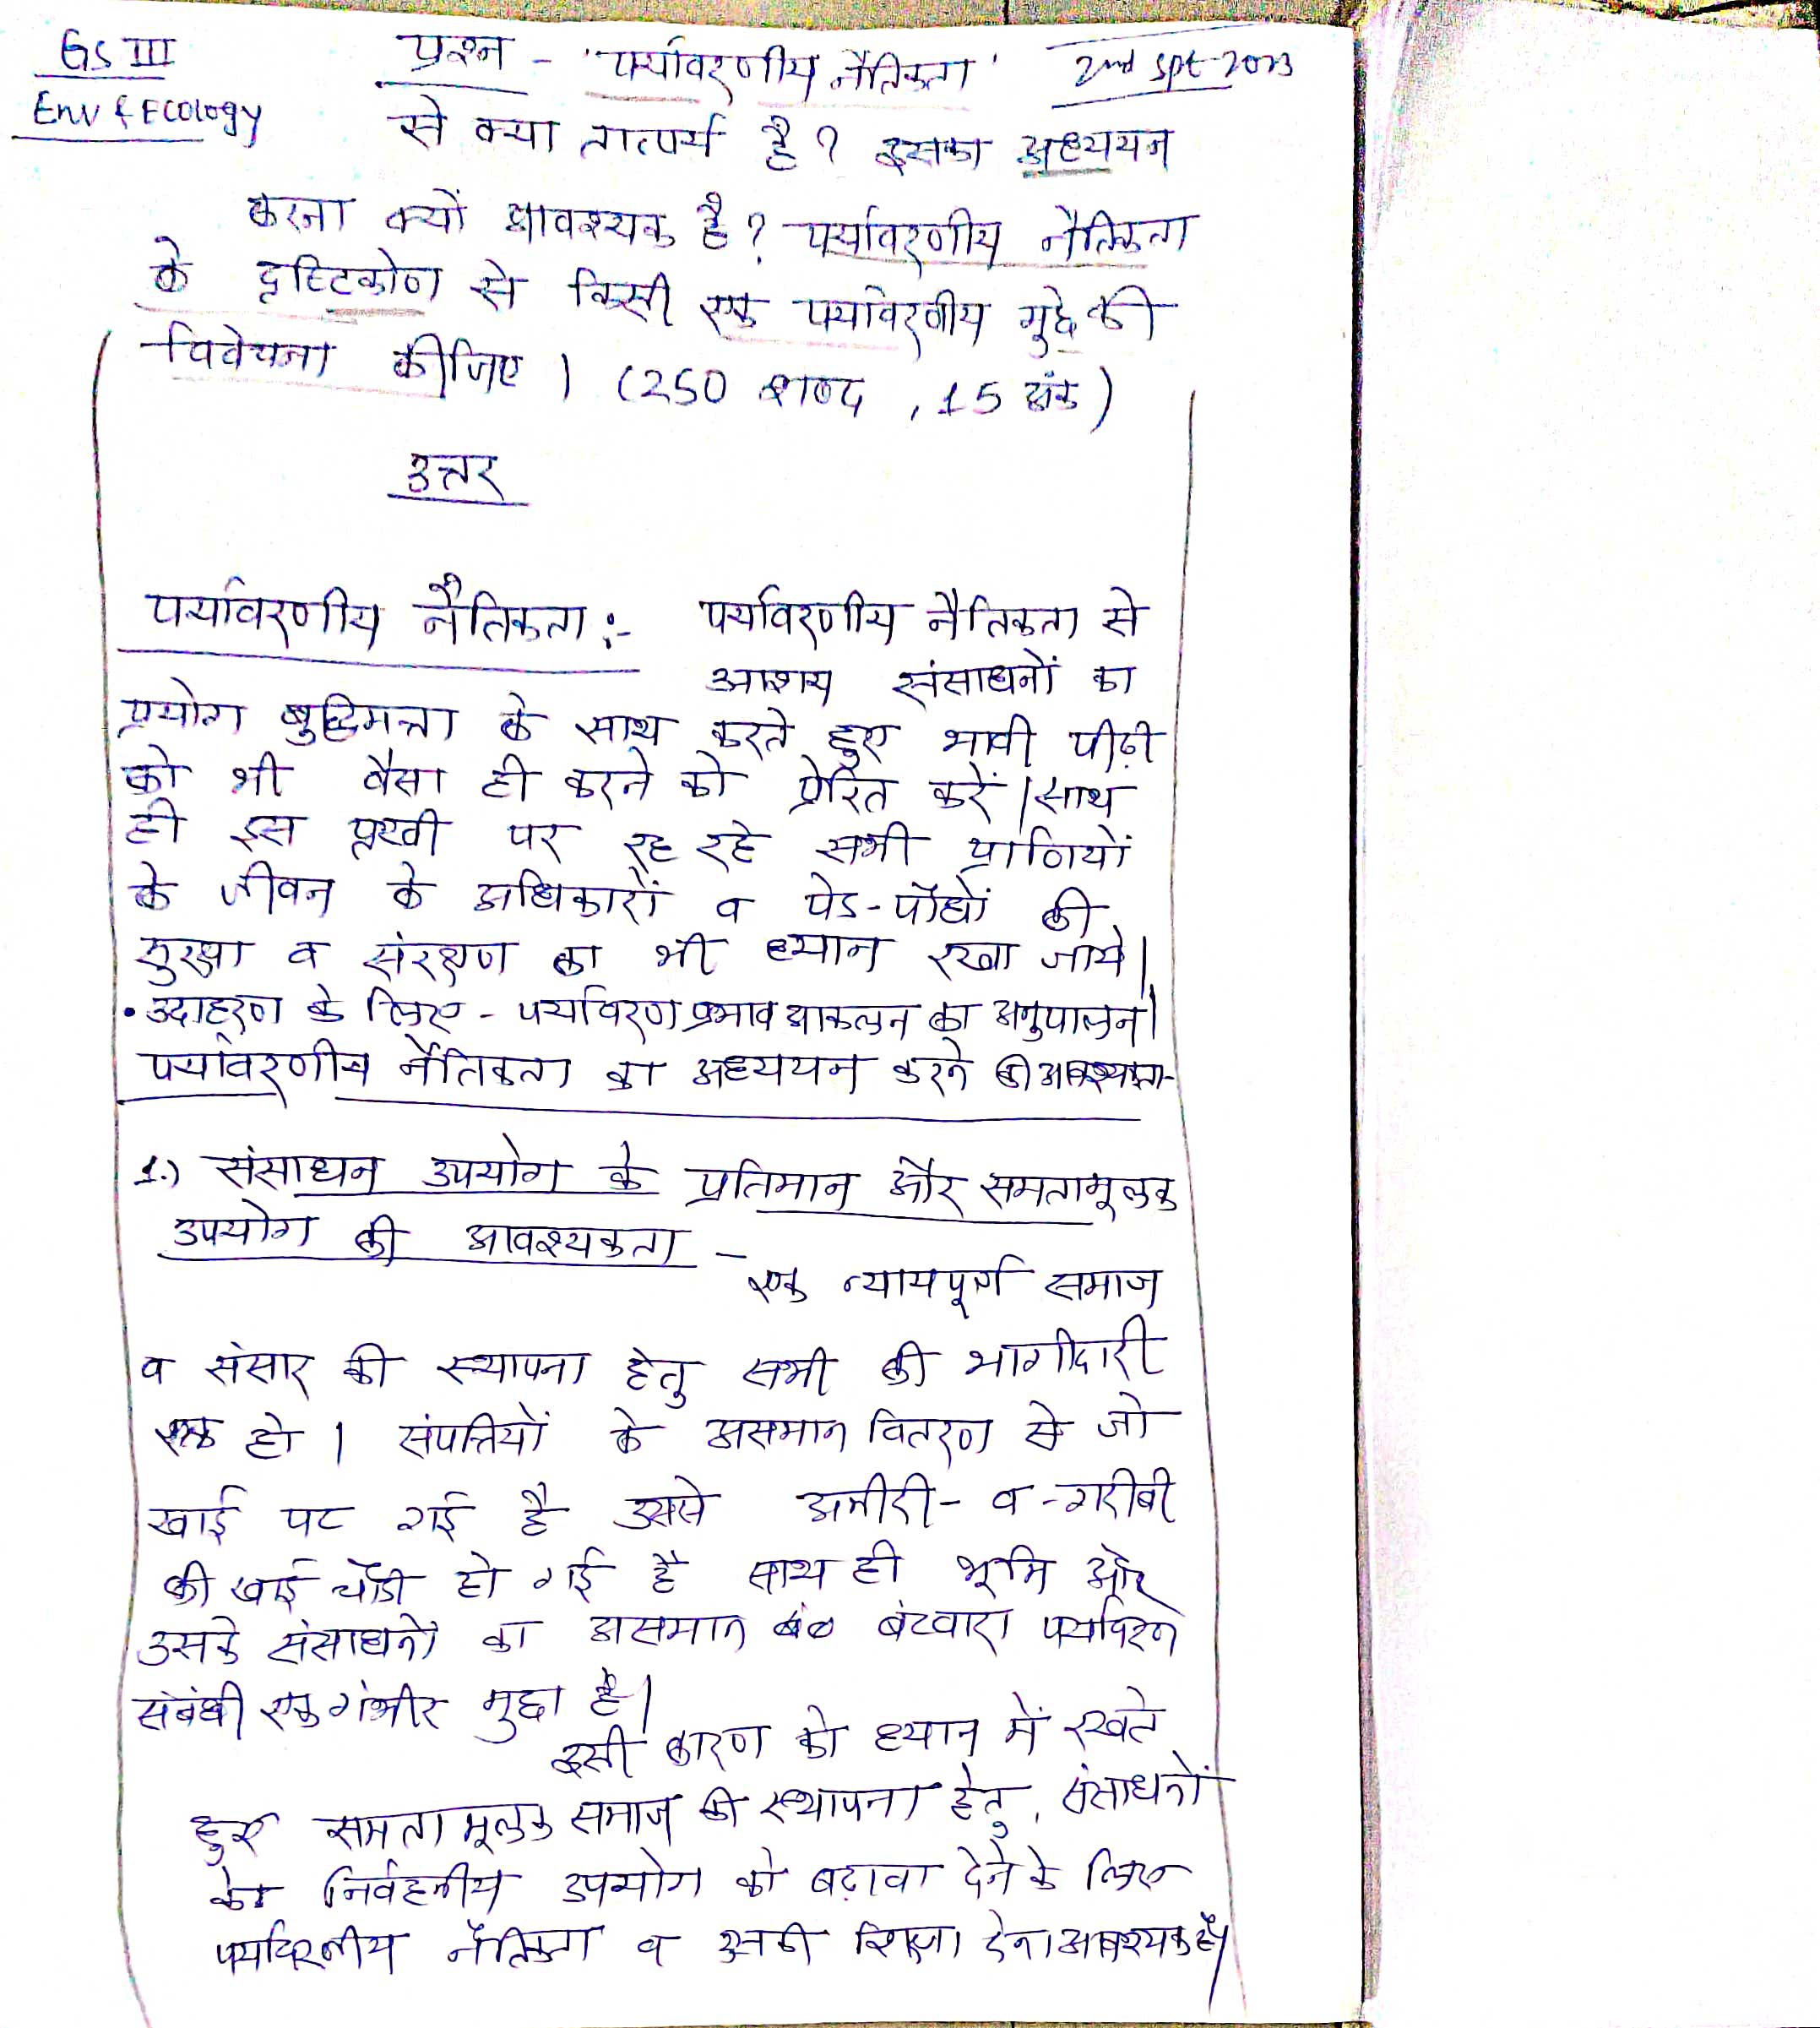 GS III
Env & Ecology
2nd Spt-2023
प्रश्न - 'पर्यावरणीय नैतिकता'
से क्या तात्पर्य है? इसका अध्ययन
करना क्यों आवश्यक है? पर्यावरणीय नैतिकता
के दृष्टिकोण से किसी एक पर्यावरणीय मुद्दे की
विवेचना कीजिए। (250 शब्द, 15 अंक)
उत्तर
पर्यावरणीय नैतिकता:- पर्यावरणीय नैतिकता से
आशय संसाधनों का
प्रयोग बुद्धिमत्ता के साथ करते हुए भावी पीढ़ी
को भी वैसा ही करने को प्रेरित करें। साथ
ही इस पृथ्वी पर रह रहे सभी प्राणियों
के जीवन के अधिकारों व पेड-पौधों की
सुरक्षा व संरक्षण का भी ध्यान रखा जाये।
• उदाहरण के लिए - पर्यावरण प्रभाव आकलन का अनुपालन।
पर्यावरणीय नैतिकता का अध्ययन करने की आवश्यकता-
1.) संसाधन उपयोग के प्रतिमान और समतामूलक
उपयोग की आवश्यकता -
एक न्यायपूर्ण समाज
व संसार की स्थापना हेतु सभी की भागीदारी
हो। संपत्तियों के असमान वितरण से जो
खाई पट गई है उससे अमीरी-व-गरीबी
की खाई चौडी हो गई है साथ ही भूमि और
उसके संसाधनों का असमान बंटवारा पर्यावरण
संबंधी एक गंभीर मुद्दा है।
इसी कारण को ध्यान में रखते
हुए समतामूलक समाज की स्थापना हेतु, संसाधनों
का निर्वहनीय उपयोग को बढ़ावा देने के लिए
पर्यावरणीय नैतिकता व उसकी शिक्षा देना आवश्यक है।